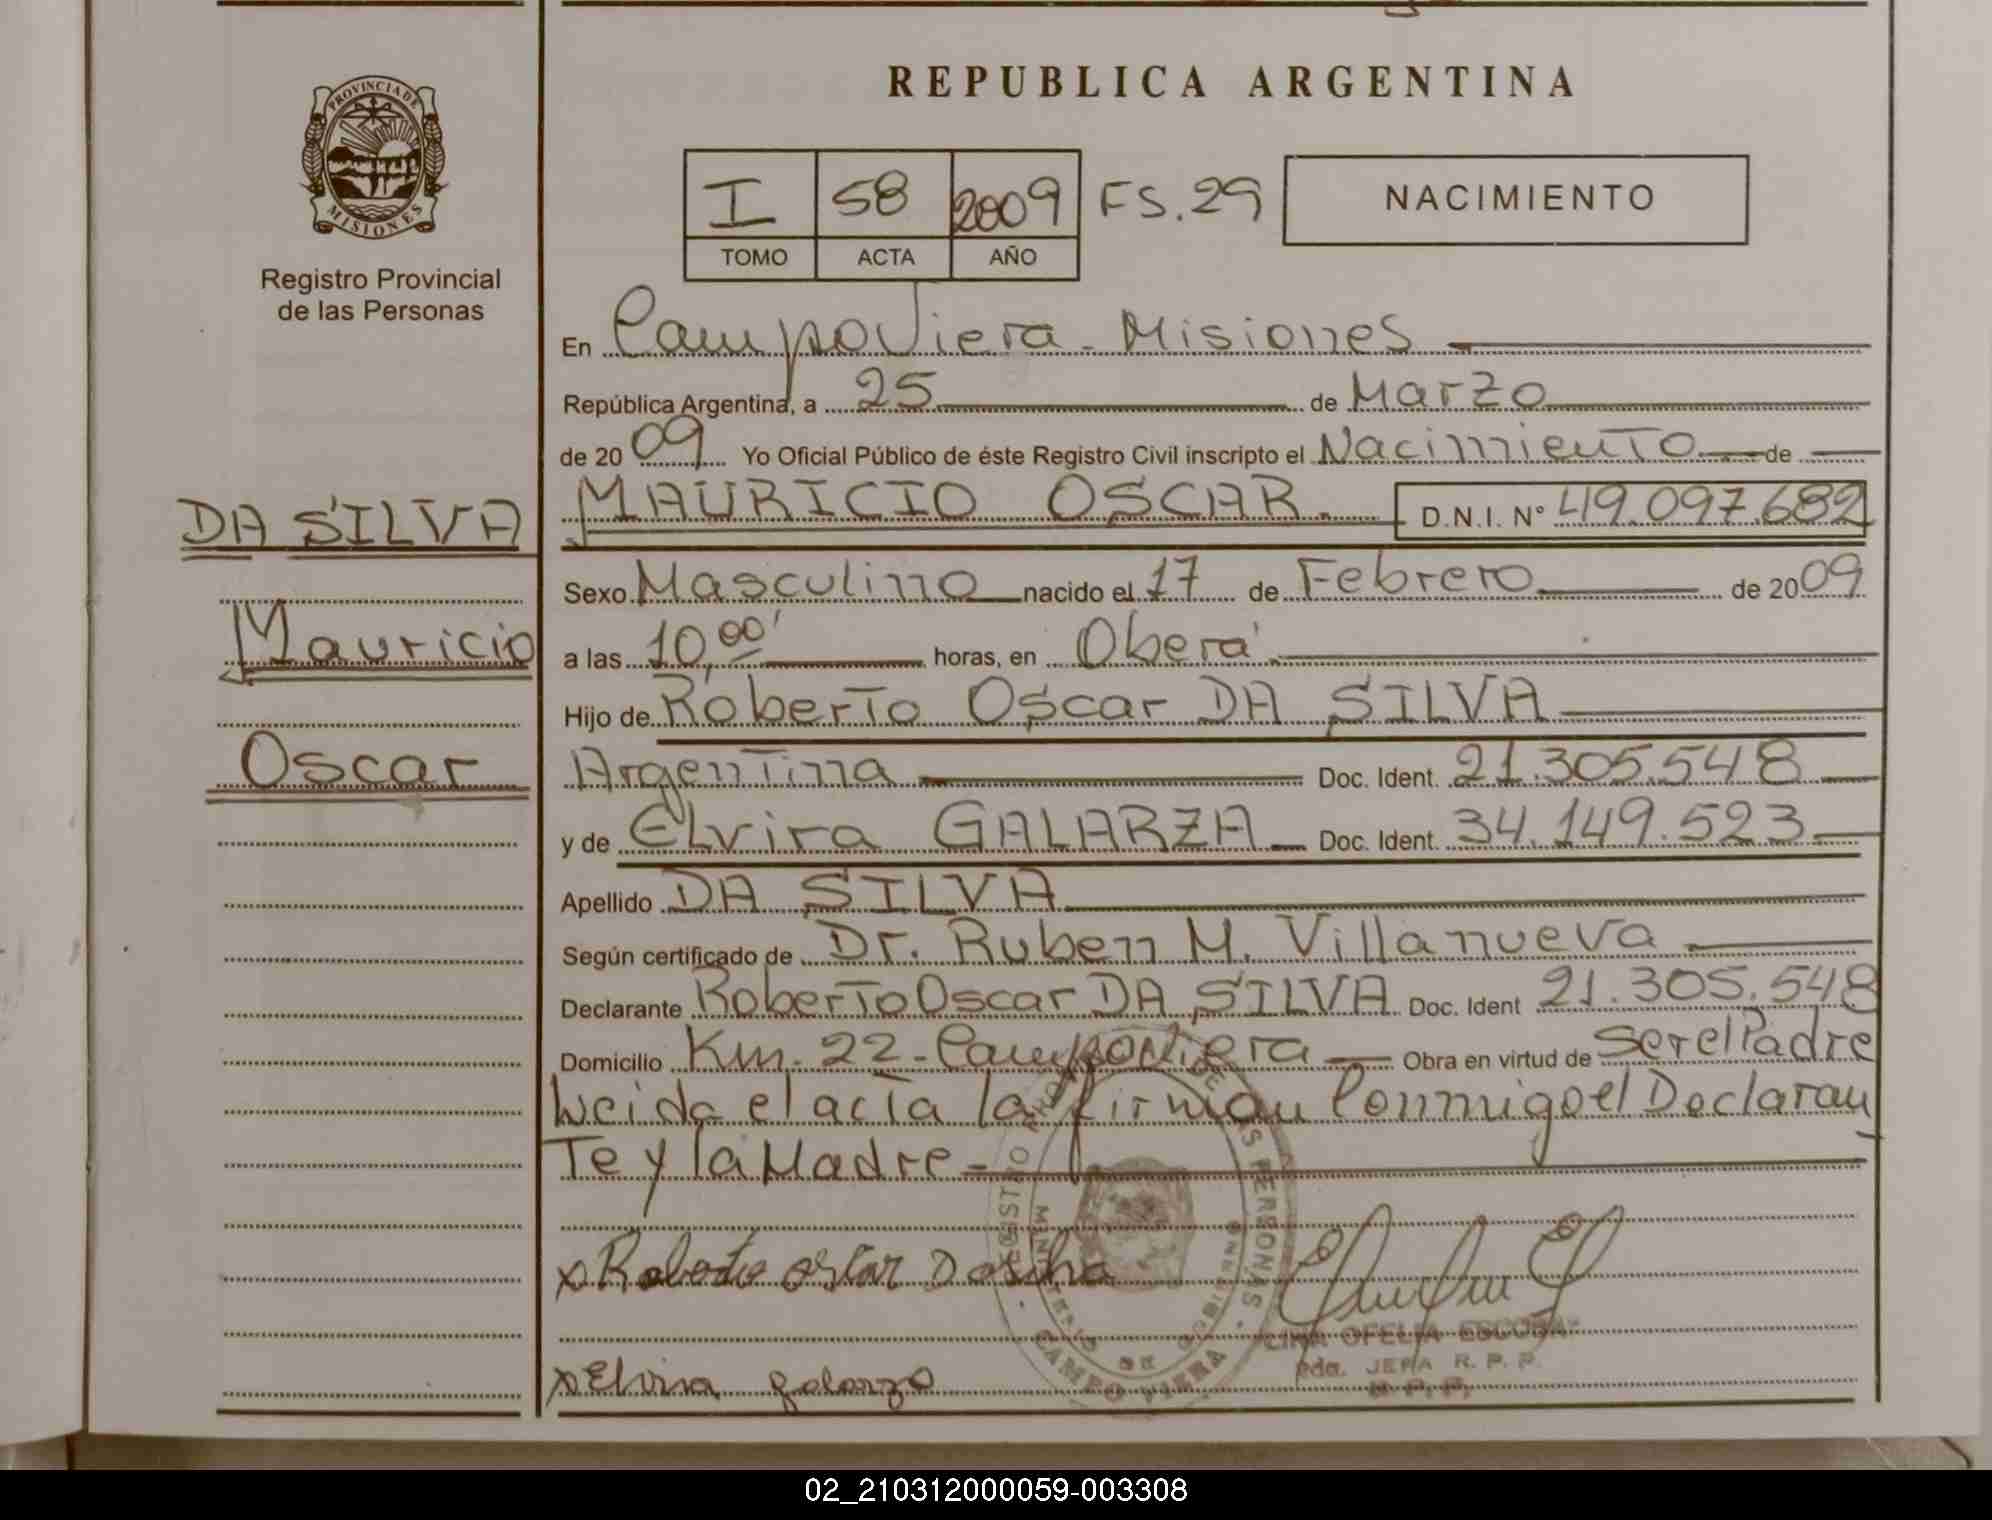 REPUBLICA ARGENTINA
PROVINCIA DE
MISIONES
Registro Provincial
de las Personas
I 58 2009 FS. 29
TOMO ACTA AÑO
NACIMIENTO
En CampoViera - Misiones
República Argentina, a 25 de Marzo
de 2009 Yo Oficial Público de éste Registro Civil inscripto el Nacimiento de
DA SILVA
MAURICIO OSCAR. D.N.I. N° 49.097.682
Sexo Masculino nacido el 17 de Febrero de 2009
Mauricio
a las 10,00' horas, en Oberá
Hijo de Roberto Oscar DA SILVA
Oscar
Argentina Doc. Ident. 21.305.548
y de Elvira GALARZA Doc. Ident. 34.149.523
Apellido DA SILVA
Según certificado de Dr. Ruben M. Villanueva
Declarante Roberto Oscar DA SILVA Doc. Ident 21.305.548
Domicilio Km. 22 - CampoViera Obra en virtud de Ser el Padre
Leida el acta la firman Conmigo el Declaran
Te y la Madre -
x Roberto oscar Da silva
x Elvira galarza
DE LAS PERSONAS
CAMPO VIERA
OFELIA ESCOBAR
JEFA R. P. P.
02_210312000059-003308